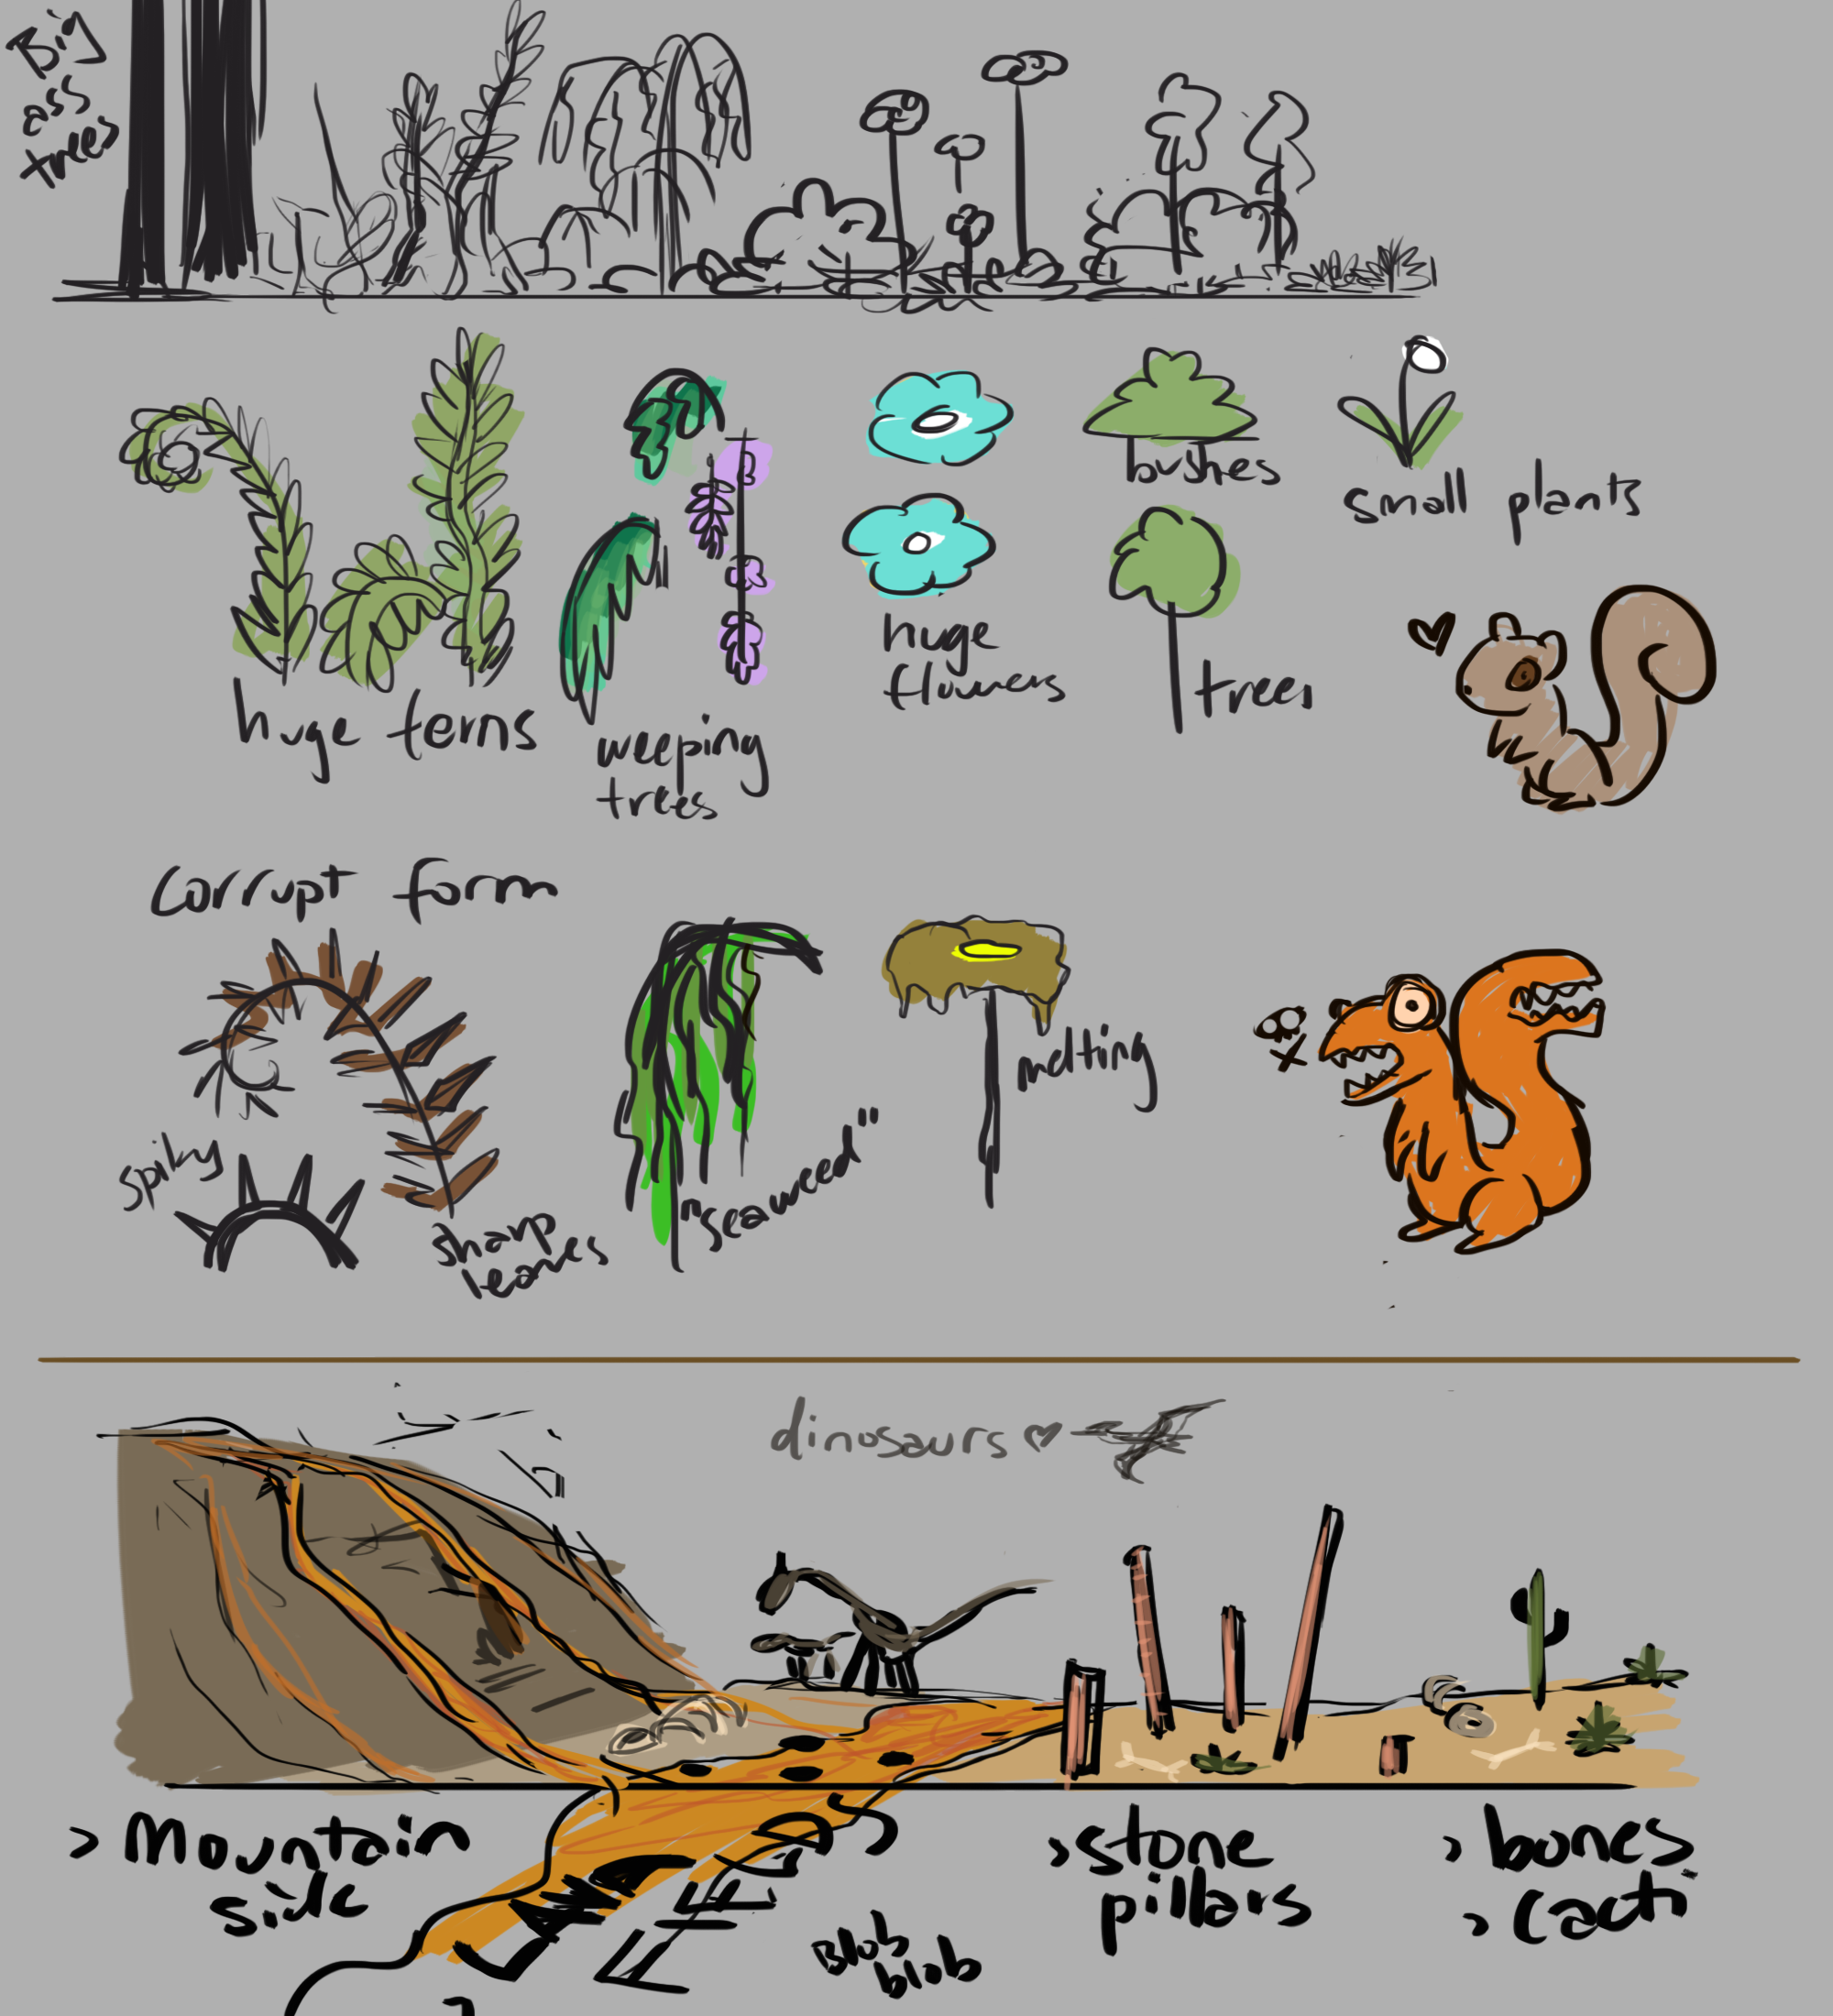 Big
ass
trees
huge ferns
weeping
trees
huge
flowers
bushes
trees
small plants
Corrupt form
spiky
sharp
leaves
"seaweed"
melting
dinosaurs
> Mountain
side
Blob
blob
> stone
pillars
> bones
> Cacti